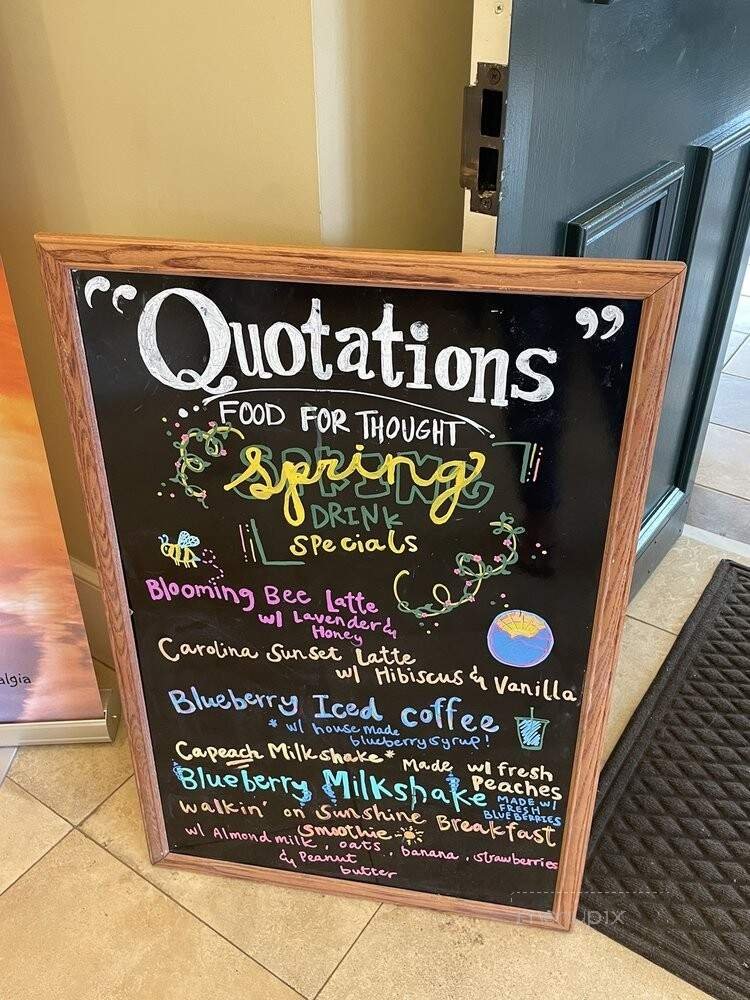 “Quotations”
FOOD FOR THOUGHT
spring
SPRING
DRINK
specials
Blooming Bee Latte
w/ Lavender &
Honey
Carolina Sunset Latte
w/ Hibiscus & Vanilla
Blueberry Iced coffee
* w/ house made
blueberry syrup!
Capeach Milkshake* Made w/ fresh
Peaches
Blueberry Milkshake MADE W/
FRESH
BLUEBERRIES
walkin' on sunshine Breakfast
Smoothie
w/ Almond milk, oats, banana, strawberries
& Peanut
butter
algia
menupix